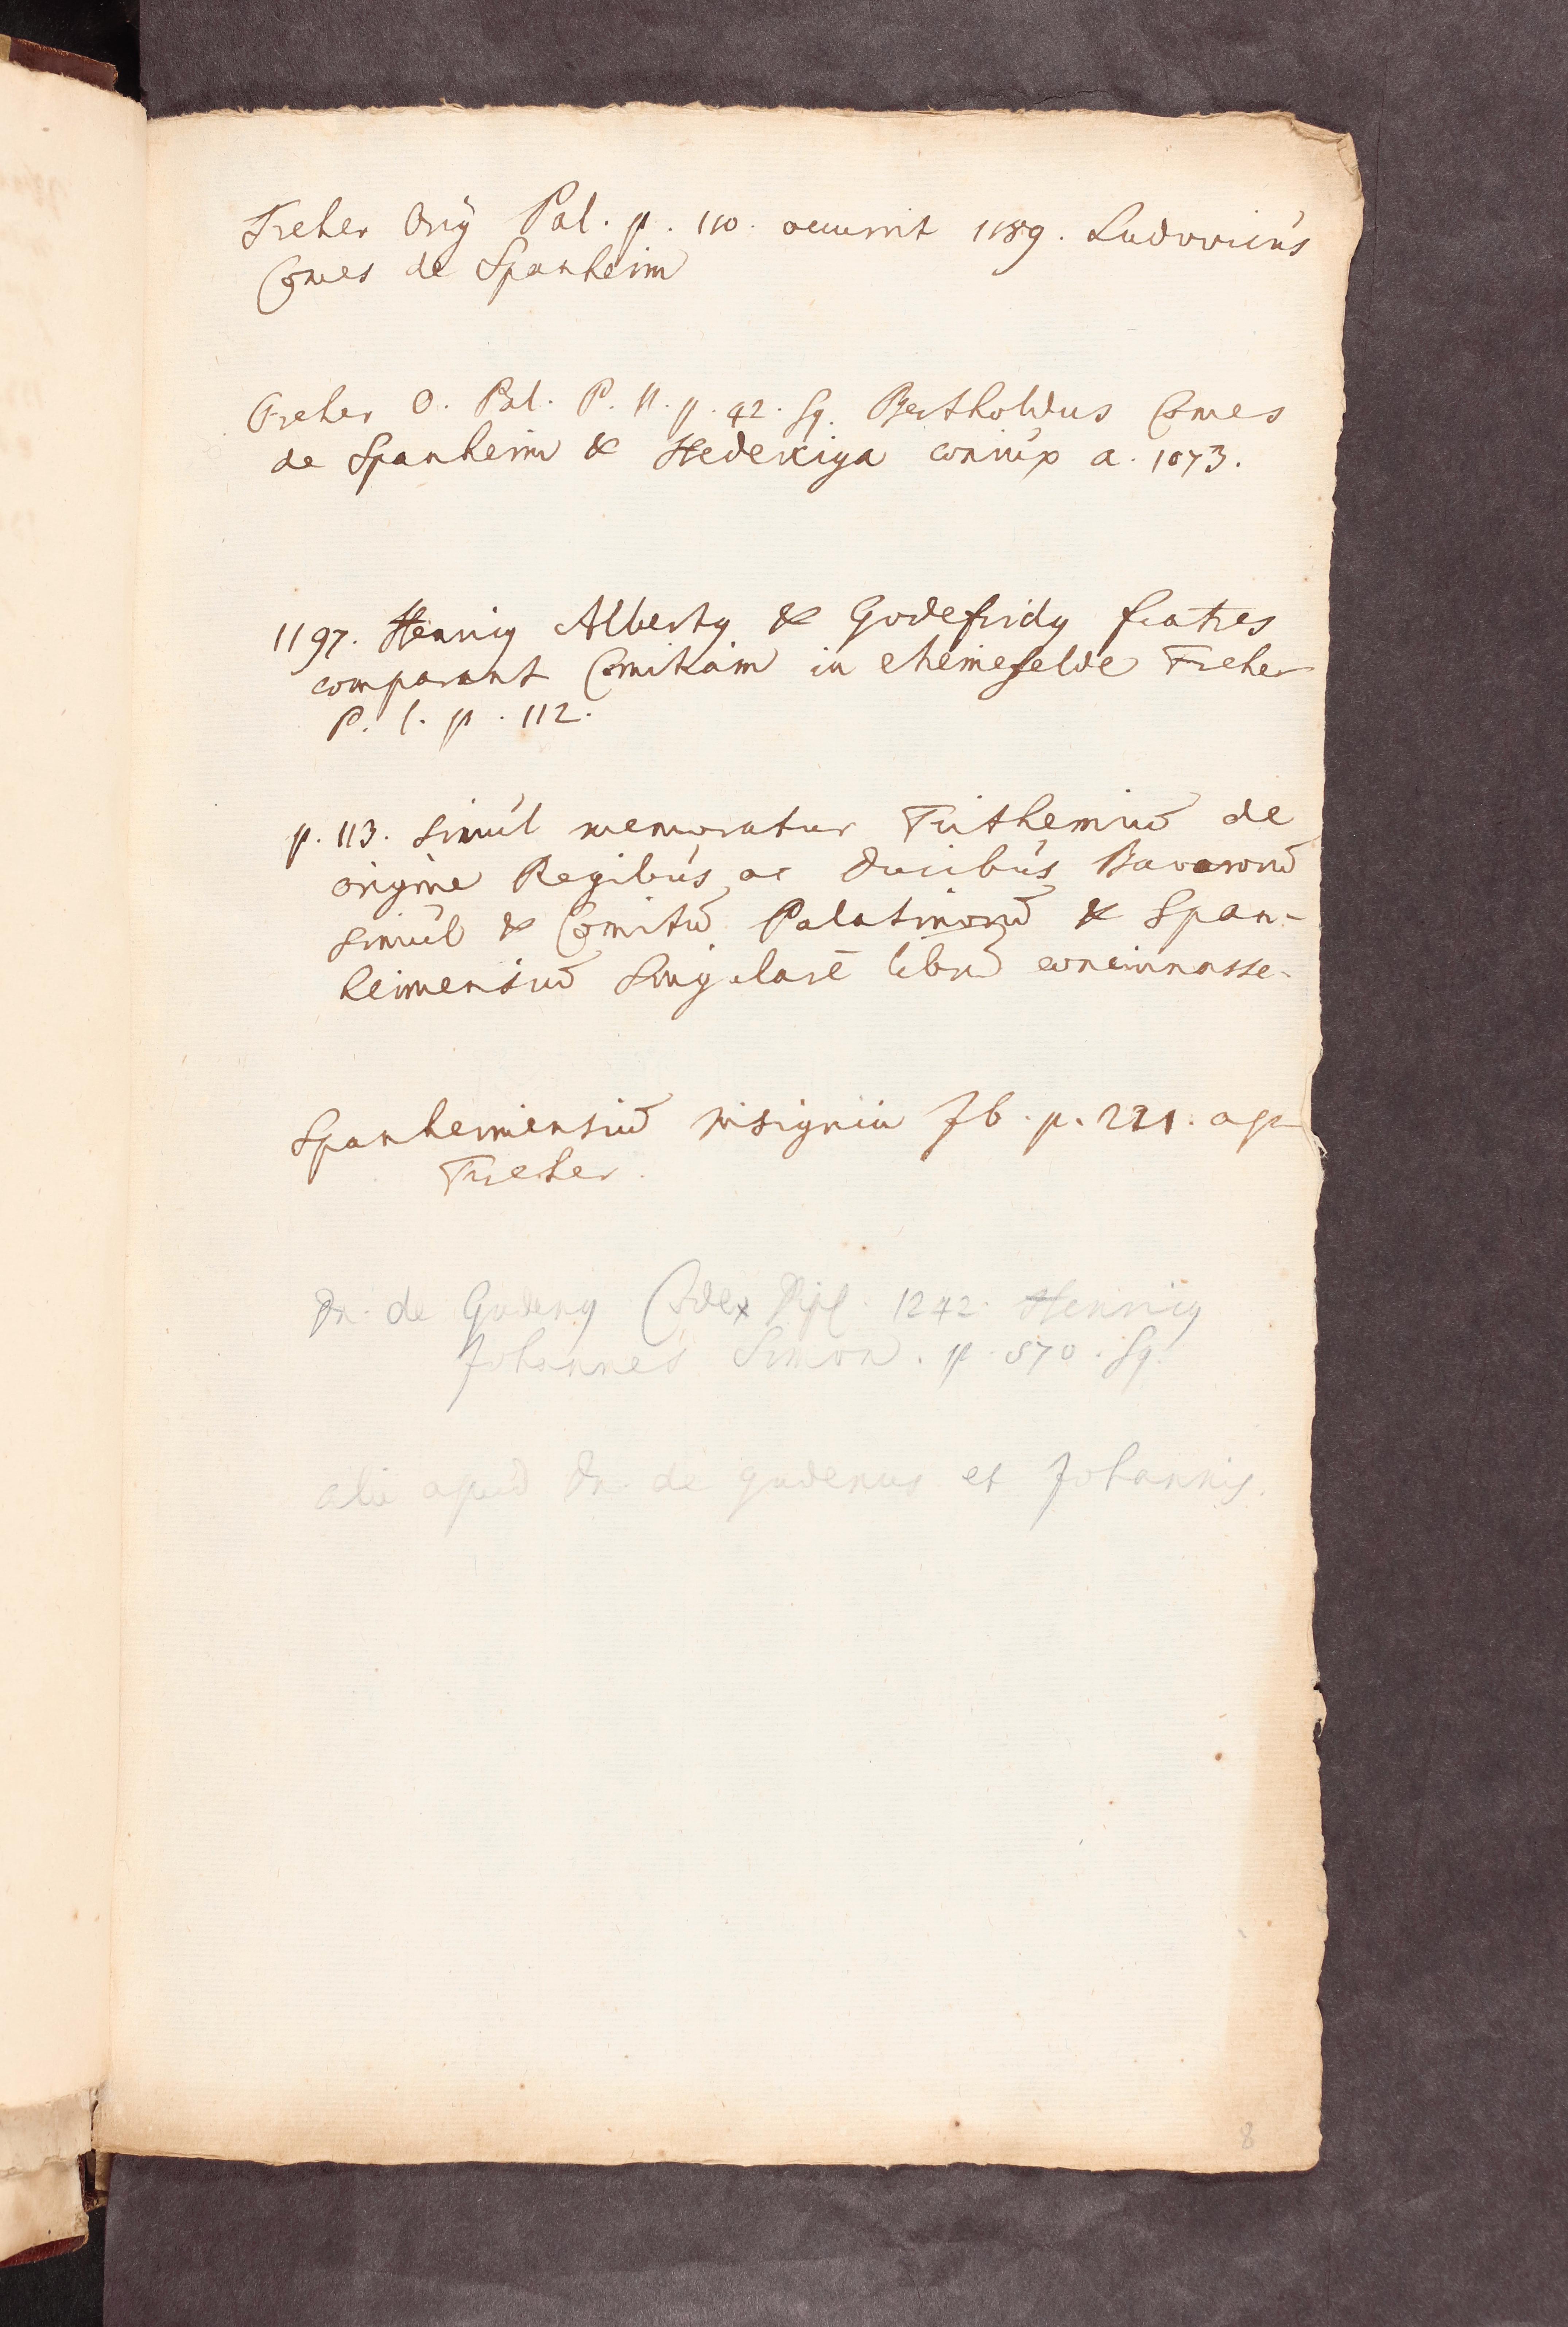 Freher Orig Pal. p. 110. occurrit 1189. Ludovicus
Comes de Spanheim
Freher O. Pal. P. II. p. 42. sq. Bertholdus Comes
de Spanheim & Hedewiga coniux a. 1073.
1197. Henricg Albertg & Godefridg fratres
comparant Comitiam in eheinefelde Freher
P. I. p. 112.
p. 113. simul memoratur Trithemiū de
origine Regibus ac Ducibus Bavarorū
simul & Comitū Palatinorū & Span-
heimensiū singularē librū concinnasse.
Spanheimensiū insignia Ib. p. 221. ap
Freher.
Dn. de Gudeng Codex Dipl. 1242. Henricg
Johannes Simon. p. 570. sq.
alii apud Dn. de gudenus et Johannis.
8